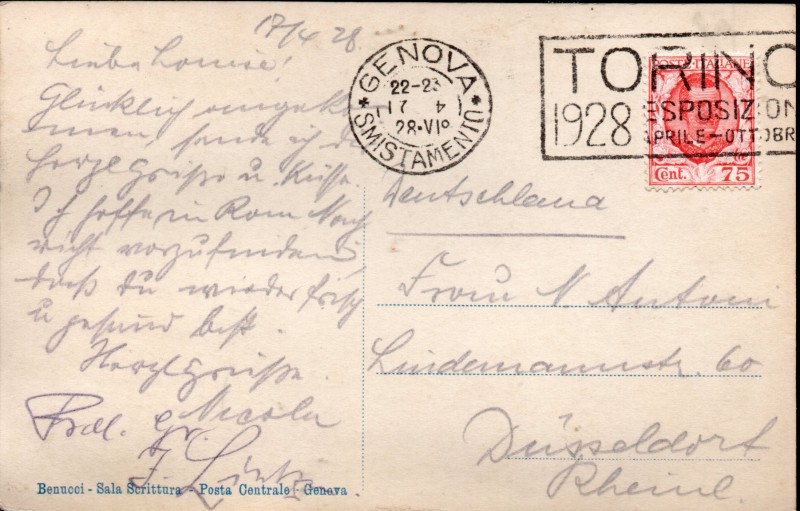 17/4 28
Liebe Louise!
Glücklich angek
ommen, sende ich dir
herzl Grüße u. Küsse.
Ich hoffe in Rom Nach
richt vorzufinden,
daß du wieder frisch
u gesund bist.
Herzl Grüße
Nicola
Frdl. Gr.
Benucci - Sala Scrittura - Posta Centrale - Genova
GENOVA
22-23
17 4
28·VI°
SMISTAMENTO
TORINO
1928 ESPOSIZION
APRILE-OTTOBR
POSTE ITALIANE
Cent. 75
Deutschland
Frau N Antom
Lindemannstr. 60
Düsseldorf
Rheinl.